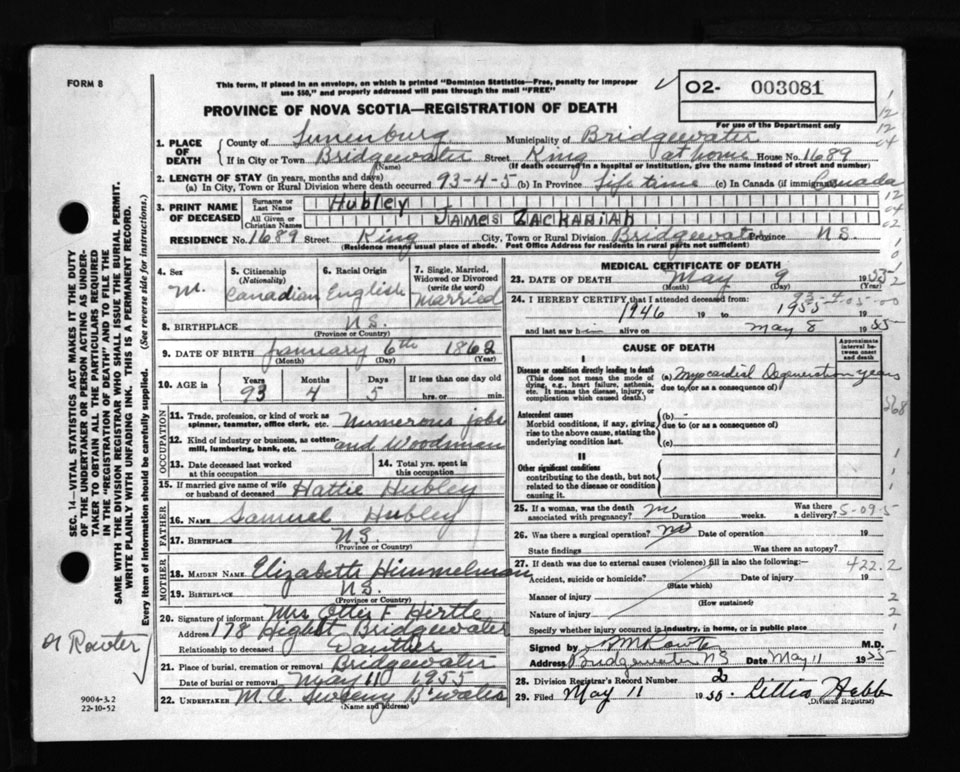 FORM 8
This form, if placed in an envelope, on which is printed "Dominion Statistics—Free, penalty for improper
use $50," and properly addressed will pass through the mail "FREE"
O2- 003081
PROVINCE OF NOVA SCOTIA—REGISTRATION OF DEATH
For use of the Department only
1. PLACE OF DEATH
County of Lunenburg Municipality of Bridgewater
If in City or Town Bridgewater Street King at home House No. 1689
(Name) (If death occurred in a hospital or institution, give the name instead of street and number)
2. LENGTH OF STAY (in years, months and days)
(a) In City, Town or Rural Division where death occurred 93-4-5 (b) In Province Life time (c) In Canada (if immigrant) Canada
3. PRINT NAME OF DECEASED
Surname or Last Name Hubley
All Given or Christian Names JAMES ZACKARIAH
RESIDENCE No. 1689 Street King City, Town or Rural Division Bridgewater Province N.S.
(Residence means usual place of abode. Post Office Address for residents in rural parts not sufficient)
4. Sex M.
5. Citizenship (Nationality) Canadian
6. Racial Origin English
7. Single, Married, Widowed or Divorced (write the word) Married
8. BIRTHPLACE N.S.
(Province or Country)
9. DATE OF BIRTH January 6th 1862
(Month) (Day) (Year)
10. AGE in Years 93 Months 4 Days 5 If less than one day old
hrs. or min.
OCCUPATION
11. Trade, profession, or kind of work as spinner, teamster, office clerk, etc. Numerous jobs
12. Kind of industry or business, as cotten-mill, lumbering, bank, etc. and Woodsman
13. Date deceased last worked at this occupation
14. Total yrs. spent in this occupation
15. If married give name of wife or husband of deceased Hattie Hubley
FATHER
16. NAME Samuel Hubley
17. BIRTHPLACE N.S.
(Province or Country)
MOTHER
18. MAIDEN NAME Elizabeth Himmelman
19. BIRTHPLACE N.S.
(Province or Country)
20. Signature of informant Mrs Ottis F. Hirtle
Address 178 High St Bridgewater
Relationship to deceased Daughter
21. Place of burial, cremation or removal Bridgewater
Date of burial or removal May 11 1955
22. UNDERTAKER M.A. Sweeny B'water
(Name and address)
MEDICAL CERTIFICATE OF DEATH
23. DATE OF DEATH May 9 1955
(Month) (Day)
24. I HEREBY CERTIFY that I attended deceased from:
1946 19 to 1955 19
and last saw him alive on May 8 1955
CAUSE OF DEATH
Approximate interval between onset and death
I
Disease or condition directly leading to death
(This does not mean the mode of dying, e.g., heart failure, asthenia, etc. It means the disease, injury, or complication which caused death.)
(a) Myocardial Degeneration years
due to (or as a consequence of)
Antecedent causes
Morbid conditions, if any, giving rise to the above cause, stating the underlying condition last.
(b)
due to (or as a consequence of)
(c)
II
Other significant conditions
contributing to the death, but not related to the disease or condition causing it.
25. If a woman, was the death associated with pregnancy? no Duration weeks. Was there a delivery? 5-09-5
26. Was there a surgical operation? no Date of operation 19
State findings Was there an autopsy?
27. If death was due to external causes (violence) fill in also the following:— 422.2
Accident, suicide or homicide? Date of injury 19
(State which)
Manner of injury
(How sustained)
Nature of injury
Specify whether injury occurred in industry, in home, or in public place
Signed by M.D.
Address Bridgewater NS Date May 11 1955
28. Division Registrar's Record Number 2
29. Filed May 11 1955. Lillia Hebb
(Division Registrar)
SEC. 14—VITAL STATISTICS ACT MAKES IT THE DUTY
OF THE UNDERTAKER OR PERSON ACTING AS UNDER-
TAKER TO OBTAIN ALL THE PARTICULARS REQUIRED
IN THE "REGISTRATION OF DEATH" AND TO FILE THE
SAME WITH THE DIVISION REGISTRAR WHO SHALL ISSUE THE BURIAL PERMIT.
WRITE PLAINLY WITH UNFADING INK. THIS IS A PERMANENT RECORD.
Every item of information should be carefully supplied. (See reverse side for instructions.)
9004-3.2
22-10-52